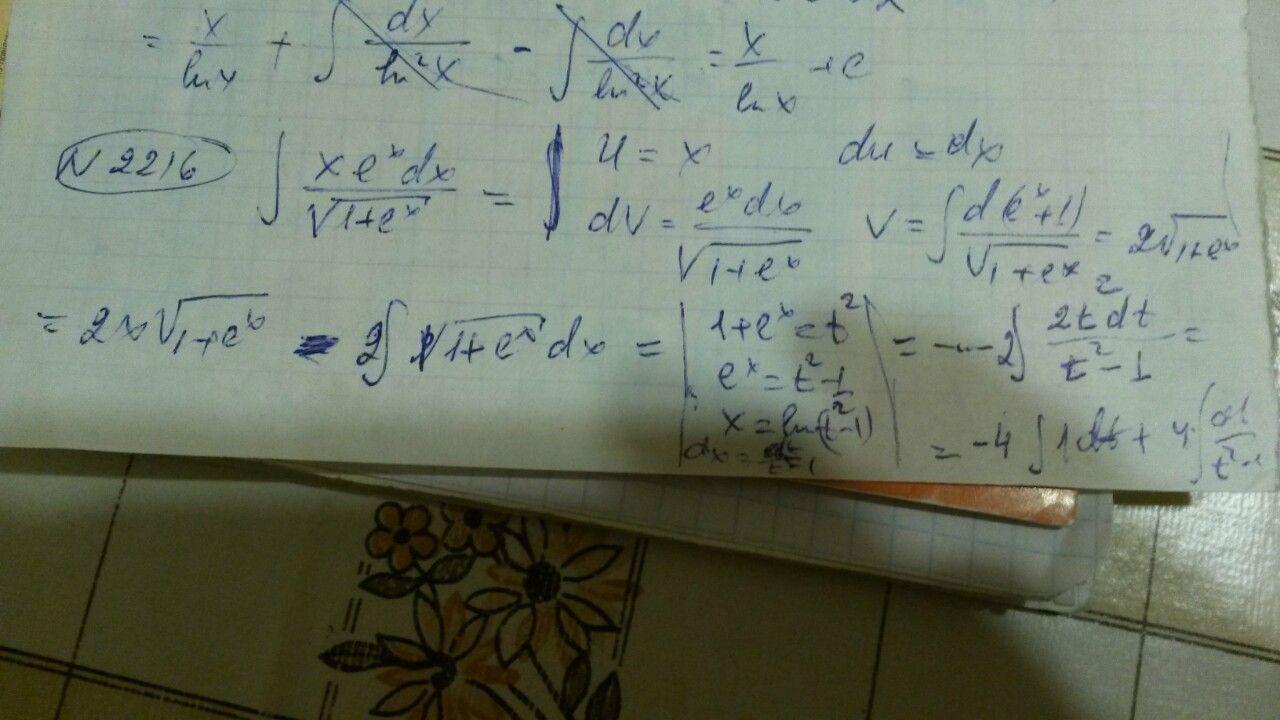 = x/ln x + ∫ dx/ln²x - ∫ dx/ln²x = x/ln x + c
N 2216 ∫ x eˣ dx/√(1+eˣ) = | u = x du = dx
dV = eˣ dx/√(1+eˣ) V = ∫ d(eˣ+1)/√(1+eˣ) = 2√(1+eˣ) |
= 2x√(1+eˣ) - 2∫ √(1+eˣ) dx = | 1+eˣ = t² | = ... - 2∫ 2t² dt/(t² - 1) =
eˣ = t² - 1
x = ln(t² - 1)
dx =
= -4 ∫ 1 dt + 4 ∫